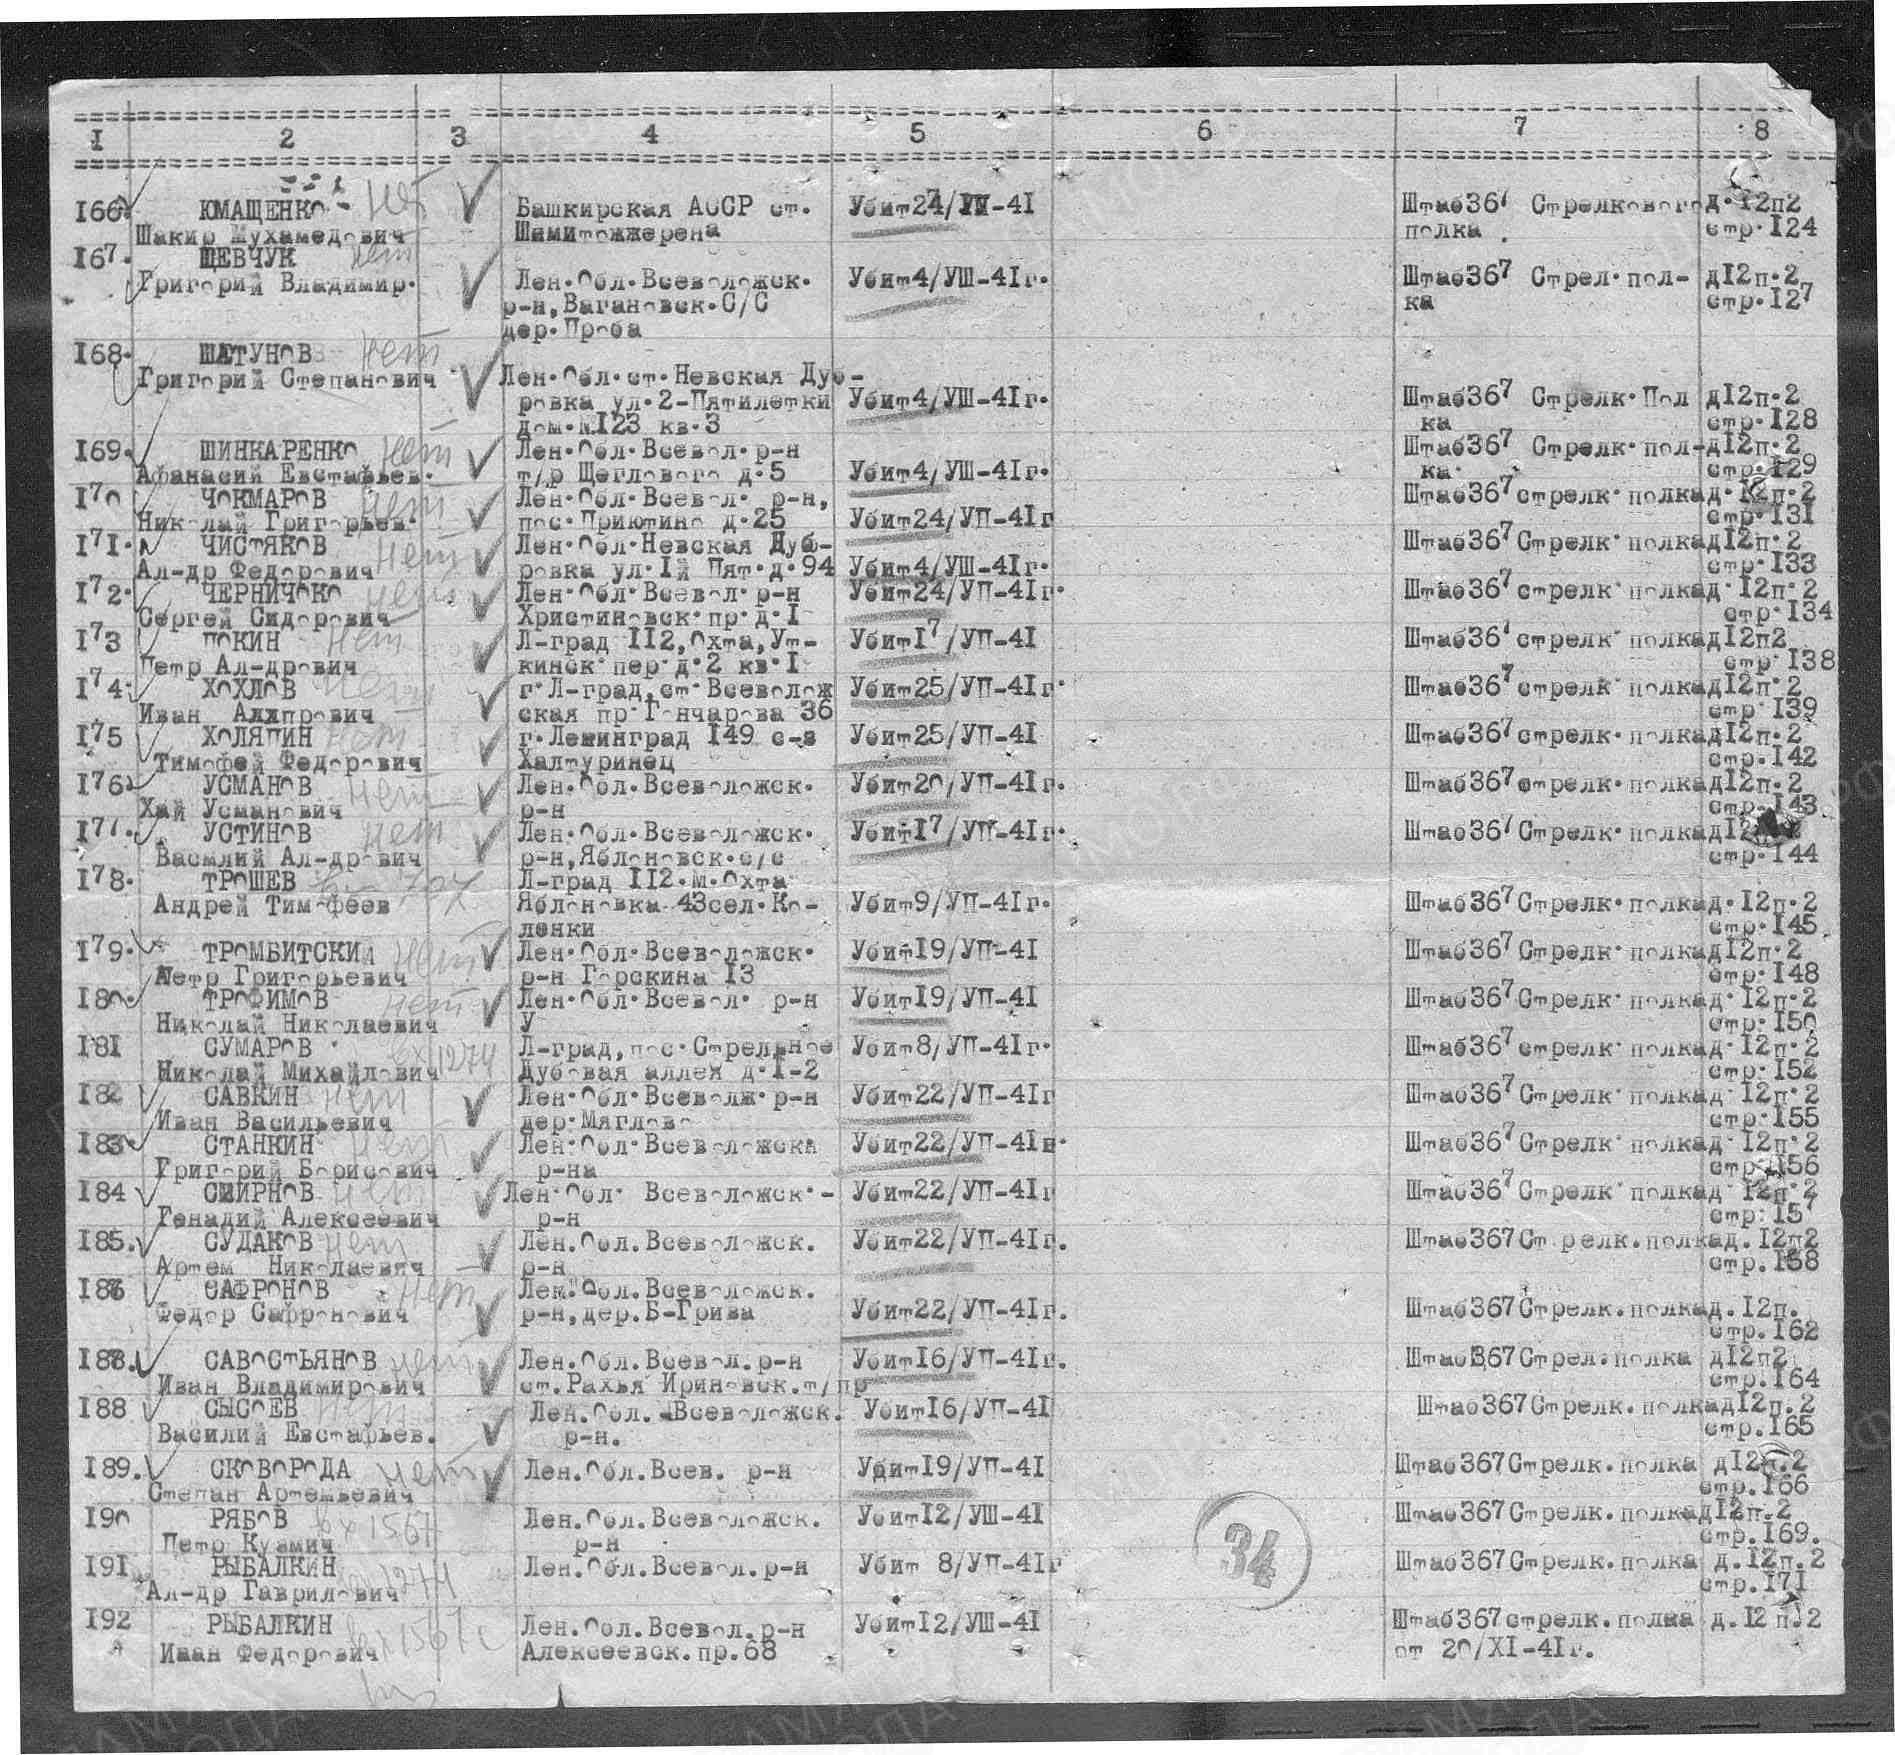 1 2 3 4 5 6 7 8
166. ЮМАЩЕНКО - нет Башкирская АССР ст. Убит 24/УП-41 Штаб 367 Стрелкового д.12п2
Шакир Мухамедович Шамитожжерена полка . стр.124
167. ШЕВЧУК нет
Григорий Владимир. Лен.Обл.Всеволожск. Убит 4/УШ-41г. Штаб 367 Стрел.пол- д12п.2
р-н,Вагановск.С/С ка стр.127
дер.Проба
168. ШАТУНОВ нет
Григорий Степанович Лен.Обл.ст.Невская Дуб-
ровка ул.2-Пятилетки Убит 4/УШ-41г. Штаб 367 Стрелк.Пол д12п.2
дом.№123 кв.3 ка стр.128
169. ШИНКАРЕНКО нет Лен.Обл.Всевол.р-н Штаб 367 Стрелк.пол- д12п.2
Афанасий Евстафьев. т/р Щеглового д.5 Убит 4/УШ-41г. ка. стр.129
170 ЧОКМАРОВ нет Лен.Обл.Всевол. р-н, Штаб 367 стрелк.полка д.12п.2
Николай Григорьев. пос.Приютино д.25 Убит 24/УП-41г стр.131
171. ЧИСТЯКОВ нет Лен.Обл.Невская Дуб- Штаб 367 Стрелк.полка д12п.2
Ал-др Федорович ровка ул.1й Пят.д.94 Убит 4/УШ-41г. стр.133
172. ЧЕРНИЧОКО нет Лен.Обл.Всевол.р-н Убит 24/УП-41г. Штаб 367 стрелк.полка д.12п.2
Сергей Сидорович Христиновск.пр.д.1 стр.134
173 ПОКИН нет Л-град 112,Охта,Ут- Убит 17/УП-41 Штаб 367 стрелк.полка д12п2
Петр Ал-дрович кинск.пер.д.2 кв.1 стр.138
174. ХОХЛОВ нет г.Л-град,ст.Всеволож Убит 25/УП-41г. Штаб 367 стрелк.полка д12п.2
Иван ская пр.Гончарова 36 стр.139
175 ХОЛЯПИН нет г.Ленинград 149 с-з Убит 25/УП-41 Штаб 367 стрелк.полка д12п.2
Тимофей Федорович Халтуринец стр.142
176. УСМАНОВ нет Лен.Обл.Всеволожск. Убит 20/УП-41г. Штаб 367 стрелк.полка д12п.2
Хай Усманович р-н стр.143
177. УСТИНОВ нет Лен.Обл.Всеволожск. Убит 17/УП-41г. Штаб 367 Стрелк.полка д12
Василий Ал-дрович р-н,Яблоновск.с/с стр.144
178. ТРОШЕВ вх 707 Л-град 112.м.Охта
Андрей Тимофеев Яблоновка 43сел.Ко- Убит 9/УП-41г. Штаб 367 Стрелк.полка д.12п.2
ленки стр.145
179. ТРОМБИТСКИЙ нет Лен.Обл.Всеволожск. Убит 19/УП-41 Штаб 367 Стрелк.полка д12п.2
Петр Григорьевич р-н Горскина 13 стр.148
180. ТРОФИМОВ нет Лен.Обл.Всевол. р-н Убит 19/УП-41 Штаб 367 Стрелк.полка д.12п.2
Николай Николаевич У стр.150
181 СУМАРОВ вх 1274 Л-град,пос.Стрельное Убит 8/УП-41г. Штаб 367 стрелк.полка д.12п.2
Николай Михайлович Дубовая аллея д.1-2 стр.152
182 САВКИН нет Лен.Обл.Всеволж.р-н Убит 22/УП-41г Штаб 367 Стрелк.полка д.12п.2
Иван Васильевич дер.Мяглово стр.155
183. СТАНКИН нет Лен.Обл.Всеволожска Убит 22/УП-41г. Штаб 367 Стрелк.полка д.12п.2
Григорий Борисович р-на стр.156
184 СМИРНОВ нет Лен.Обл. Всеволожск.- Убит 22/УП-41г Штаб 367 Стрелк.полка д.12п.2
Генадий Алексеевич р-н стр.157
185. СУДАКОВ нет Лен.Обл.Всеволожск. Убит 22/УП-41г. Штаб 367 Стрелк.полка д.12п2
Артем Николаевич р-н стр.158
186 САФРОНОВ нет Лен.Обл.Всеволожск.
Федор Сафронович р-н,дер.Б-Грива Убит 22/УП-41г. Штаб 367 Стрелк.полка д.12п.
стр.162
188. САВОСТЬЯНОВ нет Лен.Обл.Всевол.р-н Убит 16/УП-41г. Штаб 367 Стрел.полка д12п2
Иван Владимирович ст.Рахья Ириновск.т/пр стр.164
188 СЫСОЕВ нет Лен.Обл. Всеволожск. Убит 16/УП-41 Штаб 367 Стрелк.полка д12п.2
Василий Евстафьев. р-н. стр.165
189. СКОВОРОДА нет Лен.Обл.Всев. р-н Убит 19/УП-41 Штаб 367 Стрелк.полка д12п.2
Степан Артемьевич стр.166
190 РЯБОВ вх 1567 Лен.Обл.Всеволожск. Убит 12/УШ-41 Штаб 367 Стрелк.полка д12п.2
Петр Кузмич р-н стр.169.
191 РЫБАЛКИН 1274 Лен.Обл.Всевол.р-н Убит 8/УП-41г Штаб 367 Стрелк.полка д.12п.2
Ал-др Гаврилович стр.171
192 РЫБАЛКИН вх 1567с Лен.Обл.Всевол.р-н Убит 12/УШ-41 Штаб 367 стрелк.полка д.12 п.2
Иван Федорович Алексеевск.пр.68 от 20/XI-41г.
34